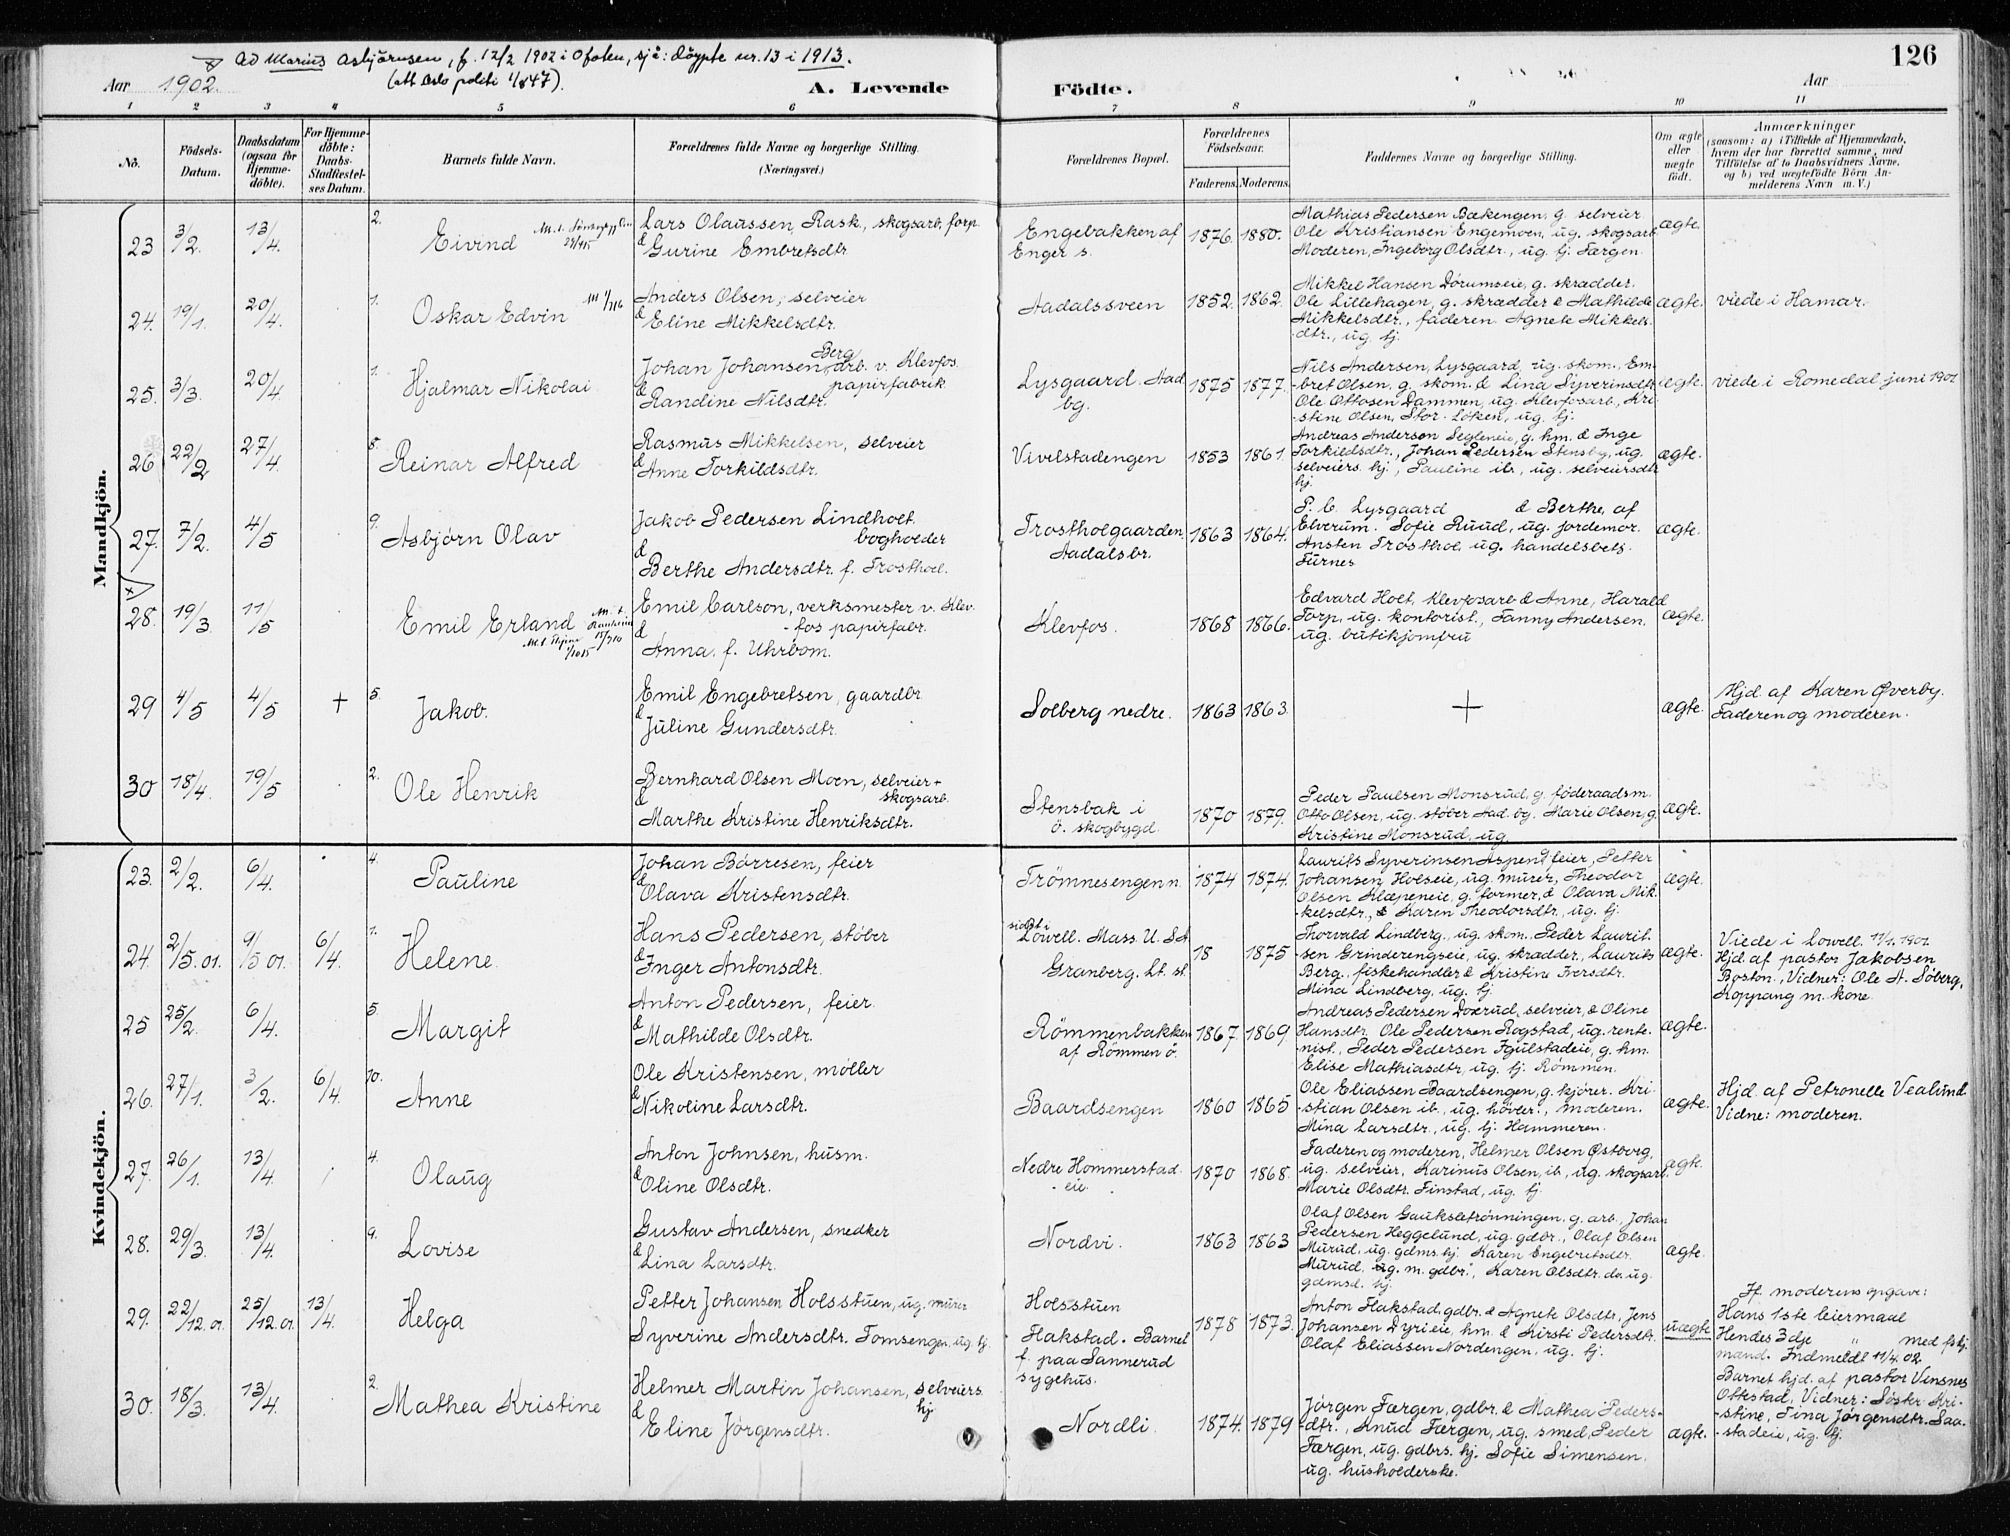 Ad Marius Asbjörnsen, f. 12/2 1902 i Ofoten, sjå: döypte nr. 13 i 1913.
(att Oslo politi 1/8 47).
126
Aar 1902.
A. Levende Födte.
Aar
1 2 3 4 5 6 7 8 9 10 11
No.
Födsels-Datum.
Daabsdatum (ogsaa for Hjemme-döbte).
For Hjemme-döbte: Daabs-Stadfæstel-ses Datum.
Barnets fulde Navn.
Forældrenes fulde Navne og borgerlige Stilling. (Næringsvei.)
Forældrenes Bopæl.
Forældrenes Födselsaar.
Faderens. Moderens.
Faddernes Navne og borgerlige Stilling.
Om ægte eller uægte födt.
Anmærkninger
(saasom: a) i Tilfælde af Hjemmedaab,
hvem der har forrettet samme, med
Tilföielse af to Daabsvidners Navne,
og b) ved uægtefödte Börn An-
melderens Navn m. V.)
Mandkjön.
23 3/2. 13/4. 2. Eivind
Lars Olaussen Rask, skogsarb. forp.
& Gurine Embretsdtr.
Engebakken af
Enger s.
1876. 1880.
Mathias Pedersen Bækengen, g. selveier
Ole Kristiansen Engemoen, ug. skogsarb.
Moderen, Ingeborg Olsdtr., ug. hj. Færgen.
ægte.
24. 19/1. 20/4. 1. Oskar Edvin
Anders Olsen, selveier
& Eline Mikkelsdtr.
Aadalssveen
1852. 1862.
Mikkel Hansen Dörumseie, g. skrædder.
Ole Lillehagen, g. skrædder & Mathilde
Mikkelsdtr., faderen. Agnete Mikkels-
dtr., ug. hj.
ægte. viede i Hamar.
25. 3/3. 20/4. 1. Hjalmar Nikolai
Johan Johansen Berg, arb. v. Klevfos
papirfabrik
& Randine Nilsdtr.
Lysgaard. Aad.
bg.
1875 1877.
Nils Andersen, Lysgaard, ug. skom., Em-
-bret Olsen, g. skom. & Lina Syverinsdtr.
Ole Ottosen Dammen, ug. Klevfosarb., Kri-
-stine Olsen, Stor-Löken, ug. hj.
ægte. viede i Romedal juni 1901
26 22/2 27/4. 5. Reinar Alfred
Rasmus Mikkelsen, selveier
& Anne Torkildsdtr.
Vivelstadengen
1853 1861.
Andreas Anderson Segleneie, g. hm. & Inge
Torkildsdtr., Johan Pedersen Stensby, ug.
selveiers. hj., Pauline ib., ug. selveiersdtr.
hj.
ægte.
27. 7/2. 4/5 9. Asbjørn Olav
Jakob Pedersen Lindholt.
bogholder
& Berthe Andersdtr. f. Trosthol.
Trostholgaarden
Aadalsbr.
1863 1864.
P. C. Lysgaard & Berthe, af
Elverum. Sofie Ruud, ug. jordemor.
Ansten Trosthol, ug. handelsbets.
Furnes
ægte.
28. 19/3. 11/5 Emil Erland
Emil Carlson, verksmester v. Klev-
-fos papirfabr.
& Anna, f. Uhrbom.
Klevfos.
1868 1866.
Edvard Holt, Klevfosarb & Anne, Harald
Torp, ug. kontorist., Fanny Andersen.
ug. butikjomfru
ægte.
29 4/5 4/5 + 5. Jakob.
Emil Engebretsen, gaardbr.
& Juline Gundersdtr.
Solberg nedre.
1863 1863.
+
ægte.
Hjd. af Karen Øverby.
Faderen og moderen.
30 18/4. 19/5 2. Ole Henrik
Bernhard Olsen Moen, selveier +
skogsarb.
& Marthe Kristine Henriksdtr.
Stensbak i
ö. skogbygd.
1870 1879.
Peder Paulsen Monsrud, g. föderaadsm.
Otto Olsen, ug. støber Aad. bg. Marie Olsen, g.
Kristine Monsrud, ug.
ægte.
Kvindekjön.
23. 2/2. 6/4. 4. Pauline
Johan Børresen, feier
& Olava Kristensdtr.
Trömnesengen n.
1874 1874.
Laurits Syverinsen Aspen, feier, Petter
Johansen Holseie, ug. murer, Theodor
Olsen Klæpeneie, g. former, & Olava Mik-
-kelsdtr., & Karen Theodorsdtr., ug. hj.
ægte.
24. 2/5.01. 9/5 01. 6/4. 1. Helene.
Hans Pedersen, støber
& Inger Antonsdtr.
sidst i
Lowell. Mass. U. S. A.
Granberg, Lt. st.
18 1875
Thorvald Lindberg., ug. skom. Peder Laurit-
sen Grinderengseie, ug. skrædder., Laurits
Berg., fiskehandler & Kristine Iversdtr.
Mina Lindberg, ug. hj.
ægte.
Viede i Lowell. 11/1. 1901.
Hjd. af pastor Jakobsen
Boston., Vidner: Ole A. Søberg,
Koppang m. kone.
25 25/2. 6/4. 5. Margit
Anton Pedersen, feier.
& Mathilde Olsdtr.
Römmenbakken
af Römmen ö.
1867. 1869.
Andreas Pedersen Doxrud, selveier, & Oline
Hansdtr. Ole Pedersen Rogstad, ug. rente-
-nist., Peder Pedersen Igulstadeie, g. hm.
Elise Mathiasdtr, ug. hj. Rømmen.
ægte.
26. 27/1. 3/2. 6/4. 10. Anne
Ole Kristensen, møller
& Nikoline Larsdtr.
Baardsengen
1860 1865
Ole Eliassen Baardsengen, g. kjörer. Kri-
-stian Olsen ib., ug. hövler., moderen.
Mina Larsdtr., ug. hj. Hammeren.
ægte.
Hjd. af Petronelle Vealund.
Vidne: moderen.
27. 26/1. 13/4. 4. Olaug
Anton Johnsen, husm.
& Oline Olsdtr.
Nedre Hommerstad
-eie.
1870 1868.
Faderen og moderen, Helmer Olsen Østberg,
ug. selveier, Karinus Olsen, ib., ug. skogsarb.
Marie Olsdtr. Finstad, ug. hj.
ægte.
28. 29/3. 13/4. 9. Lovise
Gustav Andersen, snedker
& Lina Larsdtr.
Nordvi.
1863 1863
Olaf Olsen Gaukseltrönningen, g. arb., Johan
Pedersen Heggelund, ug. gdbr., Olaf Olsen
Murud, ug. gdms. hj. Karen Engebretsdtr.
Murud, ug. m. gdbr., Karen Olsdtr. do. ug.
gdmsd. hj.
ægte.
29. 22/12.01. 25/12.01. 13/4. Helga
Petter Johansen Holsstuen, ug. murer
Syverine Andersdtr. Tomsengen, ug. hj.
Holsstuen
Flakstad. Barnet
f. paa Sannerud
sygehus.
1878 1873.
Anton Flakstad, gdbr. & Agnete Olsdtr, Jens
Johansen Dyrieie, hm. & Kirsti Pedersdtr.
Olaf Eliassen Nordengen, ug. hj.
uægte.
If. moderens opgave:
Hans 1ste leiermaal
Hendes 3dje " med fskj.
mand. Indmeldt 11/4.02.
30. 18/3. 13/4. 2. Mathea Kristine
Helmer Martin Johansen, selveiers.
hj
& Eline Jørgensdtr.
Nordli.
1874. 1879
Jörgen Færgen, gdbr. & Mathea Peders-
-dtr., Knud Færgen, ug. smed, Peder
Færgen, ug. gdbrs. hj. Sofie Simensen.
ug. husholderske.
ægte.
Barnet hjd. af pastor Vensnes
Ottestad, Vidner: Søster Kri-
-stine, Tina Jørgensdtr. Saa-
-stadeie, ug. hj.